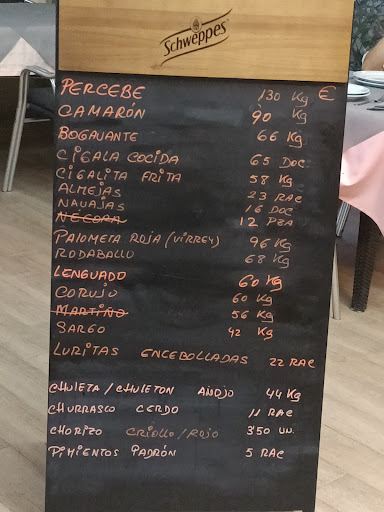 Schweppes
PERCEBE 130 Kg €
CAMARÓN 90 Kg
BOGAVANTE 66 Kg
CIGALA COCIDA 65 DOC
CIGALITA FRITA 58 Kg
ALMEJAS 23 RAC
NAVAJAS 16 DOC
NÉCORA 12 PZA
PALOMETA ROJA (VIRREY) 96 Kg
RODABALLO 68 Kg
LENGUADO 60 Kg
CORUJO 60 Kg
MARTIÑO 56 Kg
SARGO 42 Kg
LURITAS ENCEBOLLADAS 22 RAC
CHULETA/CHULETON AÑOJO 44 Kg
CHURRASCO CERDO 11 RAC
CHORIZO CRIOLLO/ROJO 3'50 UN.
PIMIENTOS PADRÓN 5 RAC